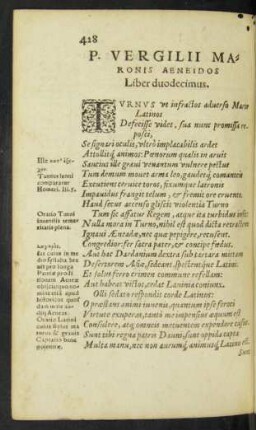 428
P. VERGILII MA-
RONIS AENEIDOS
Liber duodecimus.
TVRNVS vt infractos aduerso Marte
Latinos
Defecisse videt, sua nunc promissa re-
posci,
Se signari oculis, vltrò implacabilis ardet
Attollitq́; animos: Pœnorum qualis in aruis
Saucius ille graui venantum vulnere pectus
Tum demum mouet arma leo, gaudetq́; comanteis
Excutiens ceruice toros, fixumque latronis
Impauidus frangit telum, & fremit ore cruento.
Haud secus accenso gliscit violentia Turno
Tum sic affatur Regem, atque ita turbidus infit:
Nulla mora in Turno, nihil est quod dicta retractent
Ignaui Æneadæ, nec quæ pepigêre, recusent.
Congredior: fer sacra pater, & concipe fœdus.
Aut hac Dardanium dextra sub tartara mittam
Desertorem Asiæ, sedeant, spectentque Latini:
Et solus ferro crimen commune refellam:
Aut habeat victos, cedat Lauinia coniunx.
Olli sedato respondit corde Latinus:
O præstans animi iuuenis, quantum ipse feroci
Virtute exuperas, tantò me impensius æquum est
Consulere, atq; omneis metuentem expendere casus.
Sunt tibi regna patris Dauni, sunt oppida capta
Multa manu, nec non aurumq́; animusq́; Latino est.
Sunt
Turnus leoni
comparatur
Oratio Turni